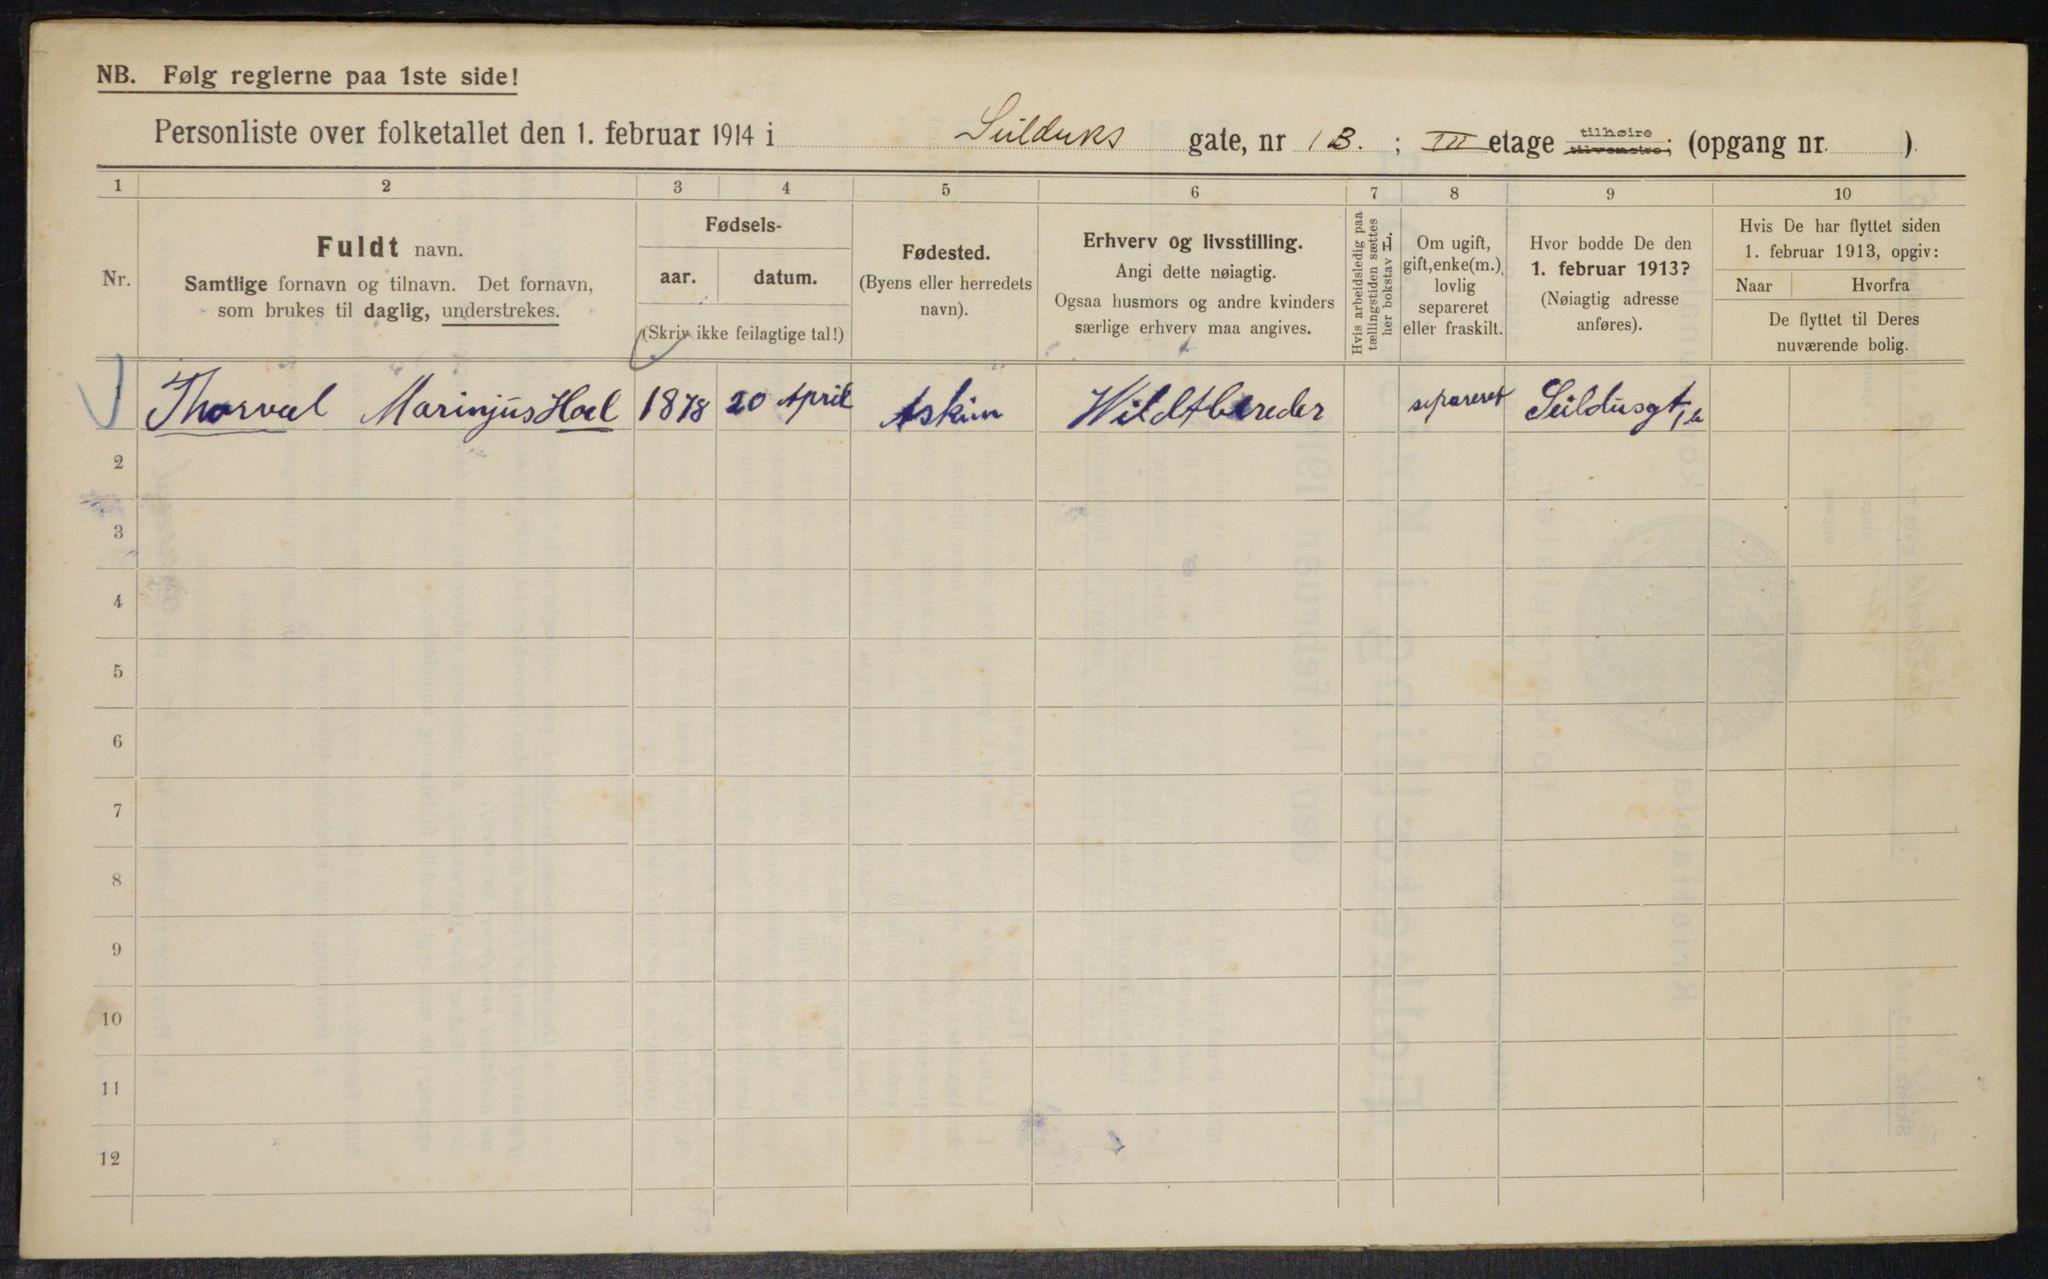 NB. Følg reglerne paa 1ste side!
Personliste over folketallet den 1. februar 1914 i Seilduks gate, nr 1 B. ; III etage tilhøire tilvenstre; (opgang nr. )
1 2 3 4 5 6 7 8 9 10
Nr.
Fuldt navn.
Samtlige fornavn og tilnavn. Det fornavn,
som brukes til daglig, understrekes.
Fødsels-
aar. datum.
(Skriv ikke feilagtige tal!)
Fødested.
(Byens eller herredets
navn).
Erhverv og livsstilling.
Angi dette nøiagtig.
Ogsaa husmors og andre kvinders
særlige erhverv maa angives.
Hvis arbeidsledig paa
tællingstiden sættes
her bokstav L.
Om ugift,
gift, enke(m.),
lovlig
separeret
eller fraskilt.
Hvor bodde De den
1. februar 1913?
(Nøiagtig adresse
anføres).
Hvis De har flyttet siden
1. februar 1913, opgiv:
Naar Hvorfra
De flyttet til Deres
nuværende bolig.
Thorval Marinjus Hoel 1878 20 April Askim Wildtbereder separeret Seildusgt 1 b
2
3
4
5
6
7
8
9
10
11
12